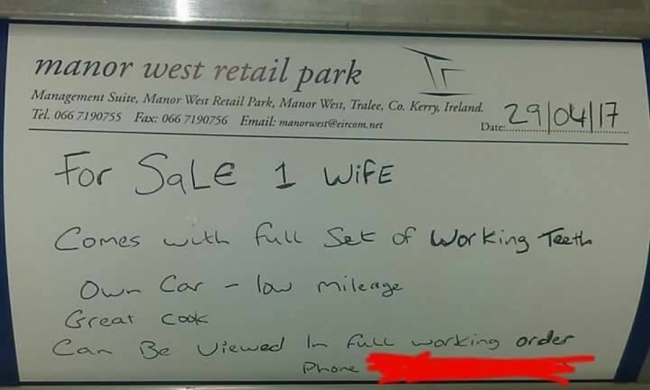 manor west retail park
Management Suite, Manor West Retail Park, Manor West, Tralee, Co. Kerry, Ireland.
Tel. 066 7190755 Fax: 066 7190756 Email: manorwest@eircom.net
Date: 29/04/17
For SaLE 1 WiFE
Comes with full Set of Working Teeth
Own Car - low mileage
Great cook
Can Be Viewed In full working order
Phone